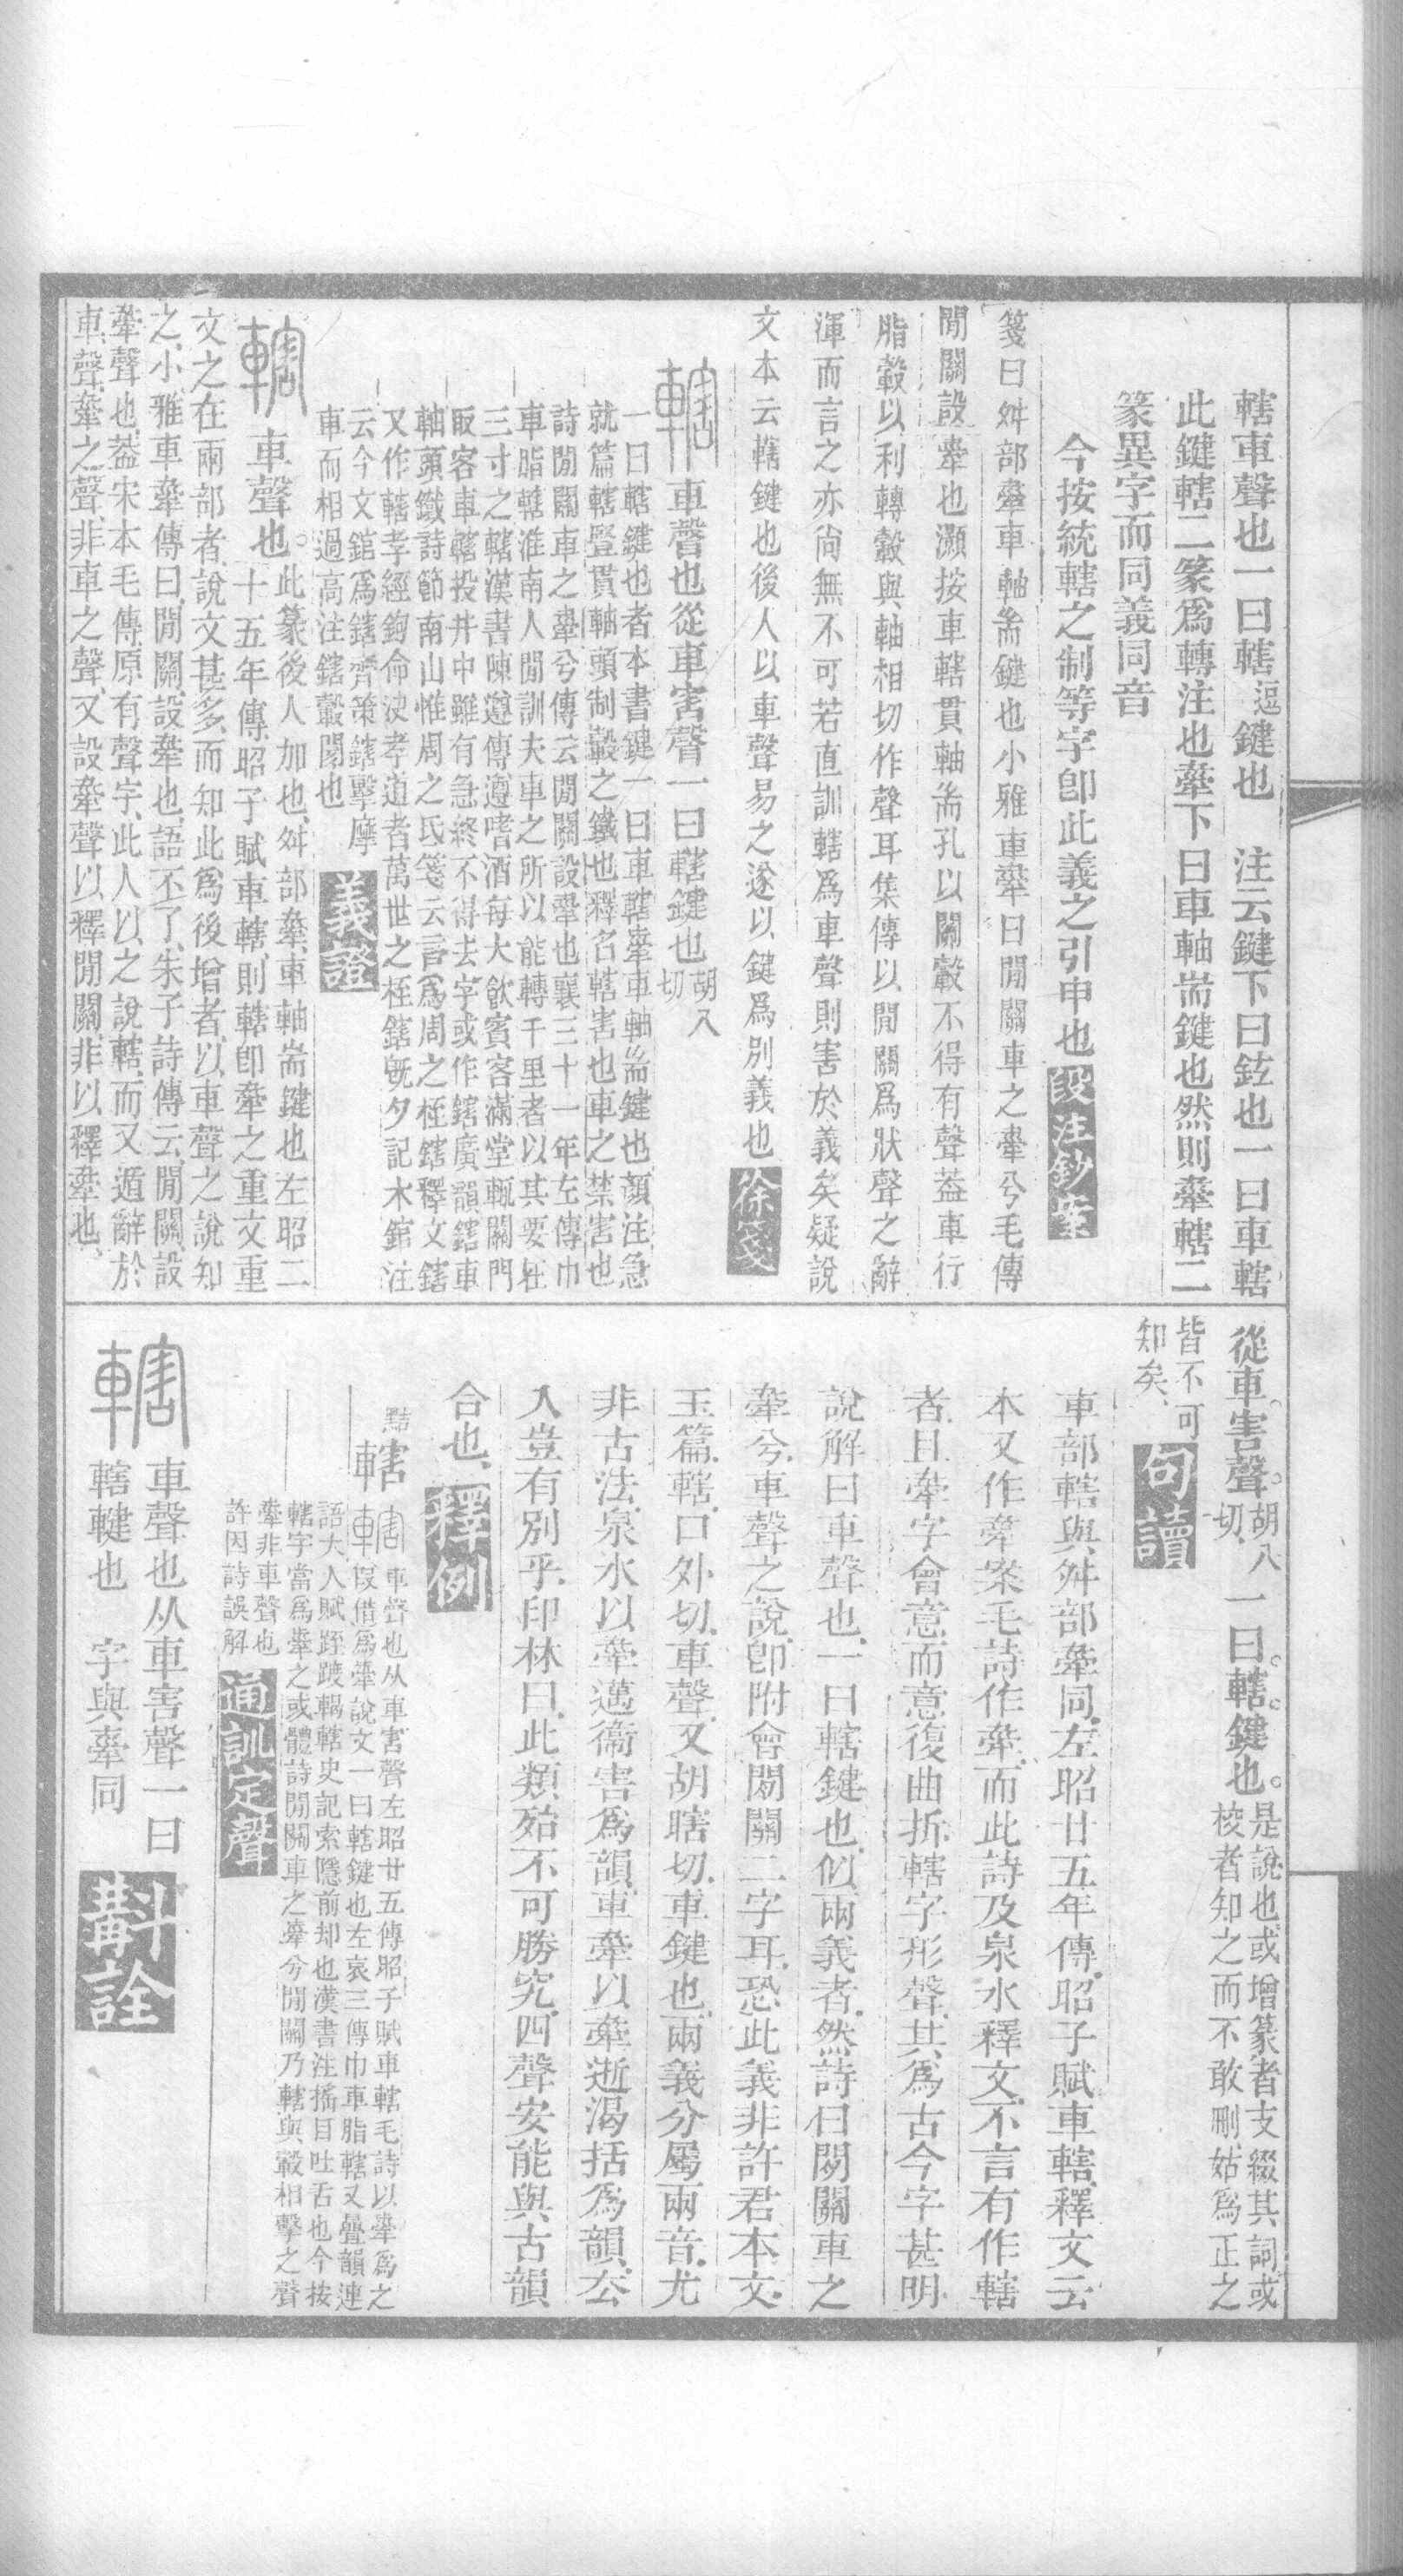 轄車聲也一曰轄逗鍵也　注云鍵下曰鉉也一曰車轄
此鍵轄二篆爲轉注也舝下曰車軸耑鍵也然則舝轄二
篆異字而同義同音
今按統轄之制等字卽此義之引申也段注鈔案
箋曰舛部舝車軸耑鍵也小雅車舝曰閒關車之舝兮毛傳
閒關設舝也灝按車轄貫軸耑孔以關轂不得有聲葢車行
脂轂以利轉轂與軸相切作聲耳集傳以閒關爲狀聲之辭
渾而言之亦尚無不可若直訓轄爲車聲則害於義矣疑說
文本云轄鍵也後人以車聲易之遂以鍵爲別義也徐箋
轄車聲也從車害聲一曰轄鍵也胡八切
一曰轄鍵也者本書鍵一曰車轄舝車軸耑鍵也顏注急
就篇轄豎貫軸頭制轂之鐵也釋名轄害也車之禁害也
詩閒關車之舝兮傳云閒關設舝也襄三十一年左傳巾
車脂轄淮南人閒訓夫車之所以能轉千里者以其要在
三寸之轄漢書陳遵傳遵嗜酒每大飮賓客滿堂輒關門
取客車轄投井中雖有急終不得去字或作鎋廣韻鎋車
軸頭鐵詩節南山惟周之氐箋云言爲周之桎鎋釋文鎋
又作轄孝經鉤命決孝道者萬世之桎鎋旣夕記木錧注
云今文錧爲鎋齊策鎋擊摩
車而相過高注鎋轂閡也義證
轄車聲也。此篆後人加也、舛部舝、車軸耑鍵也左昭二
十五年傳、昭子賦車轄、則轄卽舝之重文重
文之在兩部者、說文甚多、而知此爲後增者、以車聲之說知
之、小雅車舝傳曰、閒關、設舝也、語不了、朱子詩傳云、閒關、設
舝聲也、葢宋本毛傳、原有聲字、此人以之說轄、而又遁辭於
車聲、舝之聲、非車之聲、又設舝聲以釋閒關、非以釋舝也、
從車。害聲。胡八切、一曰。轄。鍵也。是說也、或增篆者支綴其詞、或
校者知之而不敢刪、姑爲正之
皆不可
知矣、句讀
車部轄與舛部舝同、左昭廿五年傳、昭子賦車轄、釋文云
本又作舝、案毛詩作舝、而此詩及泉水釋文、不言有作轄
者、且舝字會意而意復曲折、轄字形聲、其爲古今字甚明
說解曰車聲也、一曰轄鍵也、似兩義者、然詩曰閒關車之
舝兮、車聲之說、卽附會閒關二字耳、恐此義非許君本文、
玉篇、轄、口外切、車聲、又胡瞎切、車鍵也、兩義分屬兩音、尤
非古法、泉水以舝邁衞害爲韻、車舝以舝逝渴括爲韻、去
入豈有別乎、印林曰、此類殆不可勝究、四聲安能與古韻
合也、釋例
轄　轄車聲也从車害聲左昭廿五傳昭子賦車轄毛詩以舝爲之
叚借爲舝說文一曰轄鍵也左哀三傳巾車脂轄又疊韻連
語大人賦跮踱輵轄史記索隱前却也漢書注搖目吐舌也今按
轄字當爲舝之或體詩閒關車之舝兮閒關乃轄與轂相擊之聲
舝非車聲也
許因詩誤解通訓定聲
轄車聲也从車害聲一曰
轄鍵也　字與舝同　斠詮